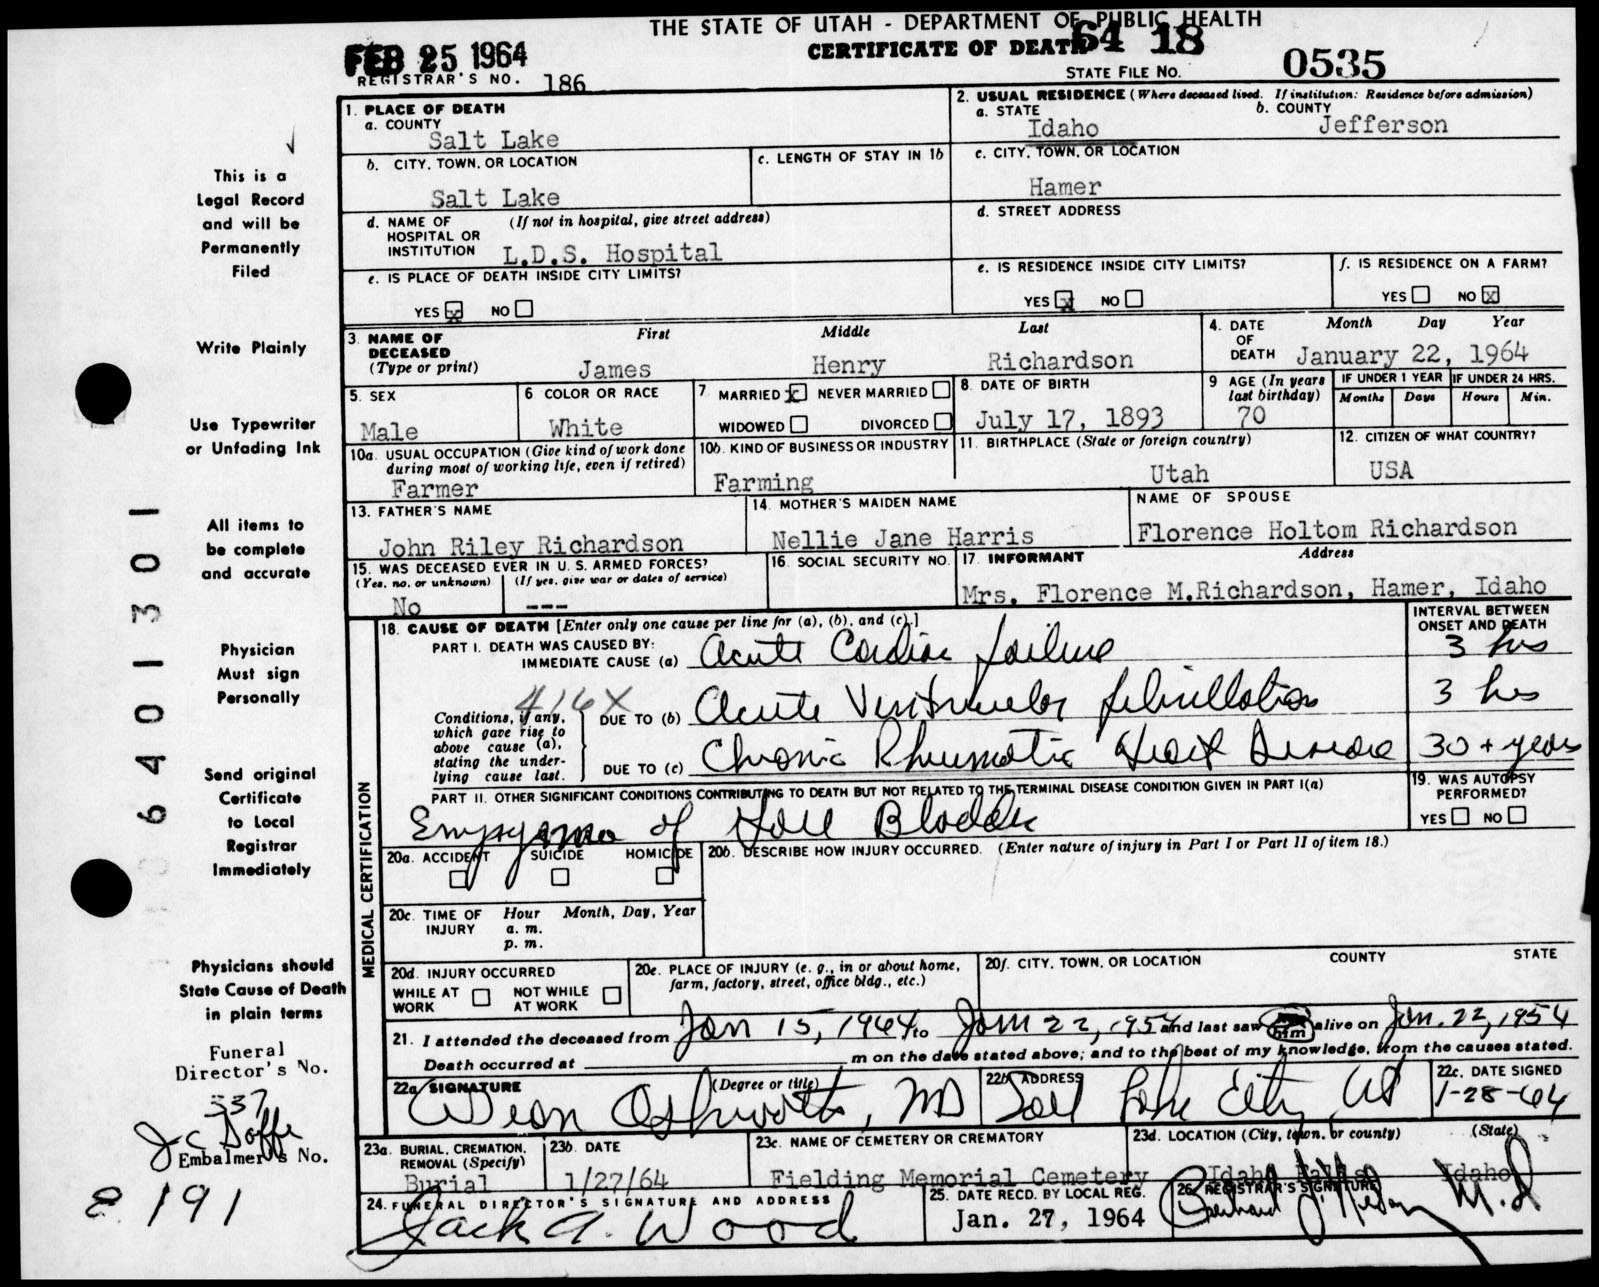 THE STATE OF UTAH - DEPARTMENT OF PUBLIC HEALTH
CERTIFICATE OF DEATH 64 18
FEB 25 1964
REGISTRAR'S NO. 186
STATE FILE NO. 0535
1. PLACE OF DEATH
a. COUNTY
Salt Lake
2. USUAL RESIDENCE (Where deceased lived. If institution: Residence before admission)
a. STATE b. COUNTY
Idaho Jefferson
b. CITY, TOWN, OR LOCATION
Salt Lake
c. LENGTH OF STAY IN 1b
c. CITY, TOWN, OR LOCATION
Hamer
d. NAME OF HOSPITAL OR INSTITUTION (If not in hospital, give street address)
L.D.S. Hospital
d. STREET ADDRESS
e. IS PLACE OF DEATH INSIDE CITY LIMITS?
YES x NO
e. IS RESIDENCE INSIDE CITY LIMITS?
YES x NO
f. IS RESIDENCE ON A FARM?
YES NO x
3. NAME OF DECEASED (Type or print)
First Middle Last
James Henry Richardson
4. DATE OF DEATH Month Day Year
January 22, 1964
5. SEX
Male
6 COLOR OR RACE
White
7 MARRIED x NEVER MARRIED
WIDOWED DIVORCED
8. DATE OF BIRTH
July 17, 1893
9 AGE (In years last birthday)
70
IF UNDER 1 YEAR
Months Days
IF UNDER 24 HRS.
Hours Min.
10a. USUAL OCCUPATION (Give kind of work done during most of working life, even if retired)
Farmer
10b. KIND OF BUSINESS OR INDUSTRY
Farming
11. BIRTHPLACE (State or foreign country)
Utah
12. CITIZEN OF WHAT COUNTRY?
USA
13. FATHER'S NAME
John Riley Richardson
14. MOTHER'S MAIDEN NAME
Nellie Jane Harris
NAME OF SPOUSE
Florence Holtom Richardson
15. WAS DECEASED EVER IN U. S. ARMED FORCES?
(Yes, no, or unknown) (If yes, give war or dates of service)
No ---
16. SOCIAL SECURITY NO.
17. INFORMANT Address
Mrs. Florence M.Richardson, Hamer, Idaho
MEDICAL CERTIFICATION
18. CAUSE OF DEATH [Enter only one cause per line for (a), (b), and (c).]
INTERVAL BETWEEN ONSET AND DEATH
PART I. DEATH WAS CAUSED BY:
IMMEDIATE CAUSE (a) Acute Cardiac failure 3 hrs
416X
Conditions, if any, which gave rise to above cause (a), stating the underlying cause last.
DUE TO (b) Acute Ventricular fibrillation 3 hrs
DUE TO (c) Chronic Rheumatic Heart Disease 30 + years
PART II. OTHER SIGNIFICANT CONDITIONS CONTRIBUTING TO DEATH BUT NOT RELATED TO THE TERMINAL DISEASE CONDITION GIVEN IN PART I(a)
Empyema of Gall Bladder
19. WAS AUTOPSY PERFORMED?
YES NO
20a. ACCIDENT SUICIDE HOMICIDE
20b. DESCRIBE HOW INJURY OCCURRED. (Enter nature of injury in Part I or Part II of item 18.)
20c. TIME OF INJURY Hour Month, Day, Year
a. m.
p. m.
20d. INJURY OCCURRED
WHILE AT WORK NOT WHILE AT WORK
20e. PLACE OF INJURY (e. g., in or about home, farm, factory, street, office bldg., etc.)
20f. CITY, TOWN, OR LOCATION COUNTY STATE
21. I attended the deceased from Jan 15, 1964 to Jan 22, 1954 and last saw him alive on Jan. 22, 1954
Death occurred at m on the date stated above; and to the best of my knowledge, from the causes stated.
22a SIGNATURE (Degree or title)
Dean Ashworth, MD
22b ADDRESS
Salt Lake City, Ut
22c. DATE SIGNED
1-28-64
23a. BURIAL, CREMATION, REMOVAL (Specify)
Burial
23b DATE
1/27/64
23c. NAME OF CEMETERY OR CREMATORY
Fielding Memorial Cemetery
23d. LOCATION (City, town, or county) (State)
Idaho Falls Idaho
24. FUNERAL DIRECTOR'S SIGNATURE AND ADDRESS
Jack A. Wood
25. DATE RECD. BY LOCAL REG.
Jan. 27, 1964
26 REGISTRAR'S SIGNATURE
M.D
This is a
Legal Record
and will be
Permanently
Filed
Write Plainly
Use Typewriter
or Unfading Ink
All items to
be complete
and accurate
Physician
Must sign
Personally
Send original
Certificate
to Local
Registrar
Immediately
Physicians should
State Cause of Death
in plain terms
Funeral
Director's No.
337
Embalmer's No.
191
6401301